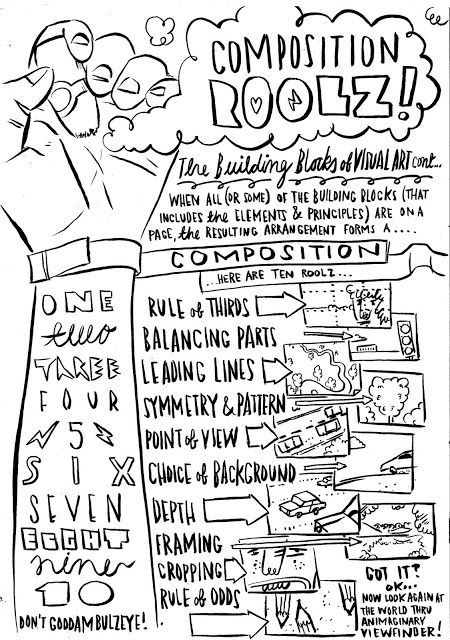 COMPOSITION
ROOLZ!
The Building Blocks of VISUAL ART cont...
WHEN ALL (OR SOME) OF THE BUILDING BLOCKS (THAT
INCLUDES the ELEMENTS & PRINCIPLES) ARE ON A
PAGE, the RESULTING ARRANGEMENT FORMS A....
COMPOSITION
...HERE ARE TEN ROOLZ...
ONE RULE of THIRDS
two BALANCING PARTS
THREE LEADING LINES
FOUR SYMMETRY & PATTERN
5 POINT of VIEW
SIX CHOICE of BACKGROUND
SEVEN DEPTH
EIGHT FRAMING
nine CROPPING
10 RULE of ODDS
DON'T GODDAM BULZEYE!
GOT IT?
OK...
NOW LOOK AGAIN AT
THE WORLD THRU
ANIMAGINARY
VIEWFINDER!